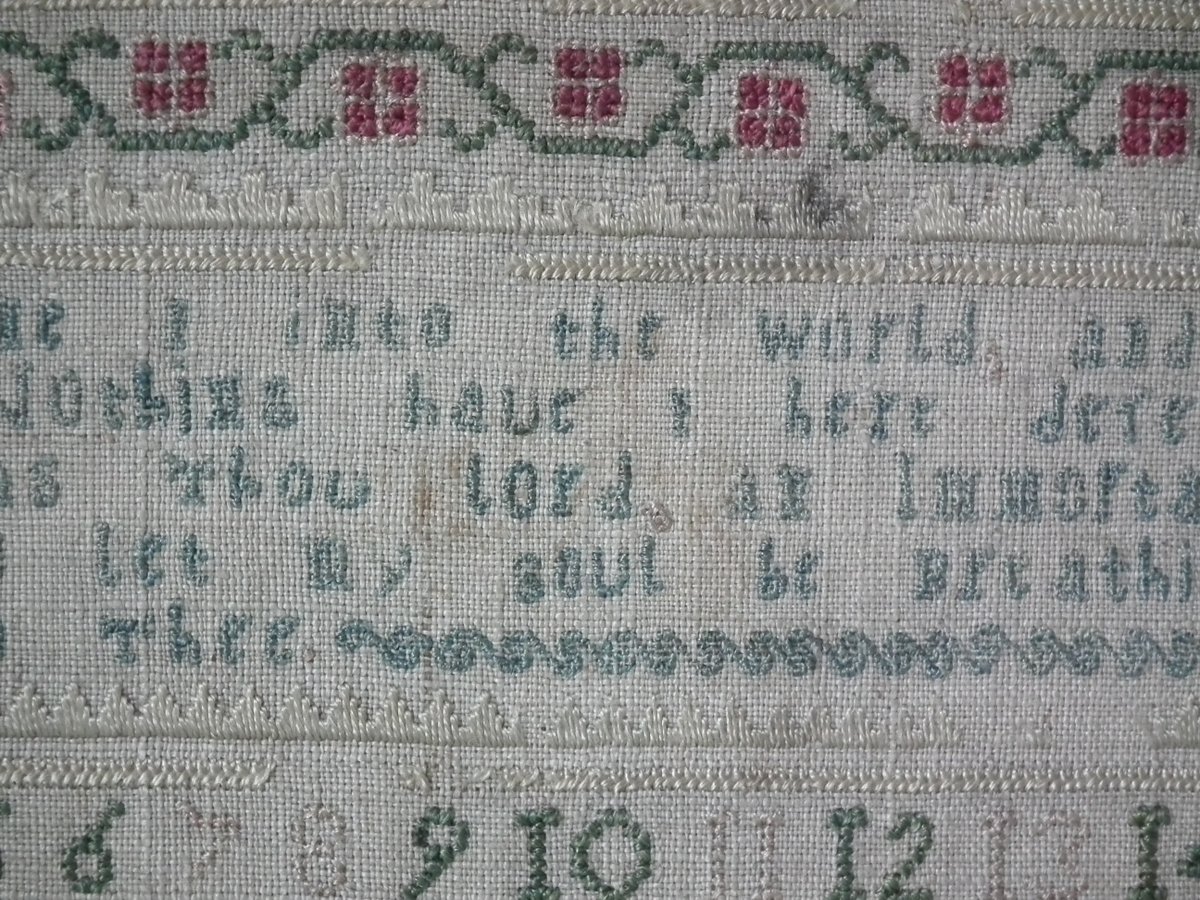 me I into the world, and
Nothing have I here dese
as Thou lord, an Immorta
let my soul be Breathi
Thee
6 7 8 9 10 11 12 13 14